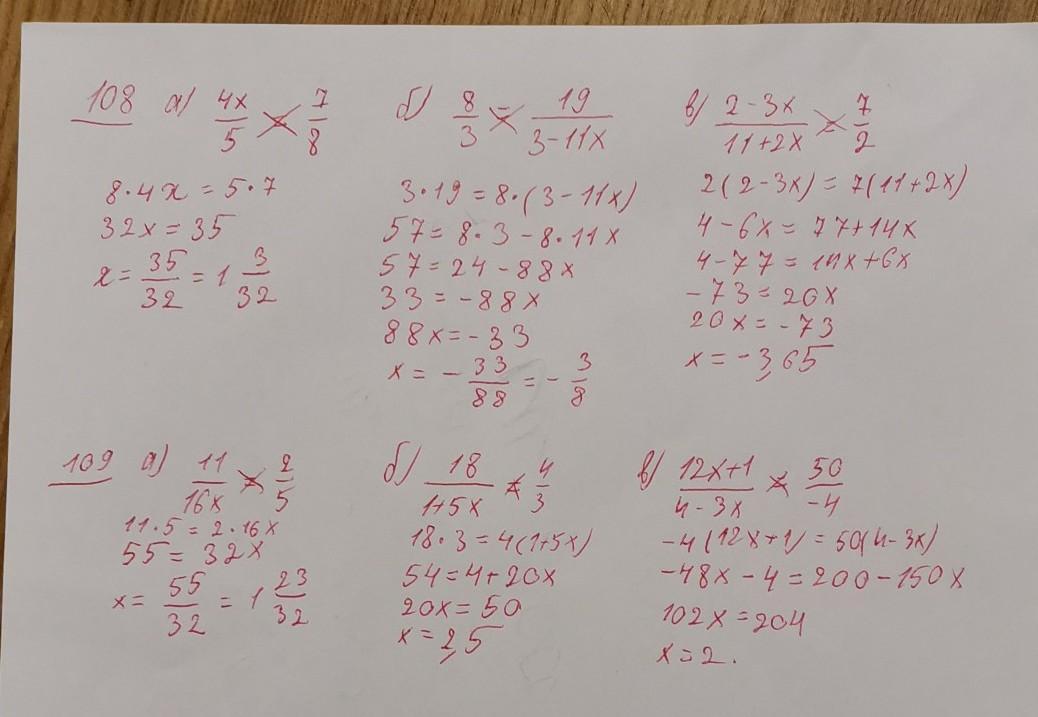 108 а) 4x/5 = 7/8
8·4x = 5·7
32x = 35
x = 35/32 = 1 3/32
б) 8/3 = 19/(3-11x)
3·19 = 8·(3-11x)
57 = 8·3 - 8·11x
57 = 24 - 88x
33 = -88x
88x = -33
x = - 33/88 = - 3/8
в) (2-3x)/(11+2x) = 7/2
2(2-3x) = 7(11+2x)
4-6x = 77+14x
4-77 = 14x+6x
-73 = 20x
20x = -73
x = -3,65
109 а) 11/16x = 2/5
11·5 = 2·16x
55 = 32x
x = 55/32 = 1 23/32
б) 18/(1+5x) = 4/3
18·3 = 4(1+5x)
54 = 4+20x
20x = 50
x = 2,5
в) (12x+1)/(4-3x) = 50/-4
-4(12x+1) = 50(4-3x)
-48x - 4 = 200 - 150x
102x = 204
x = 2.